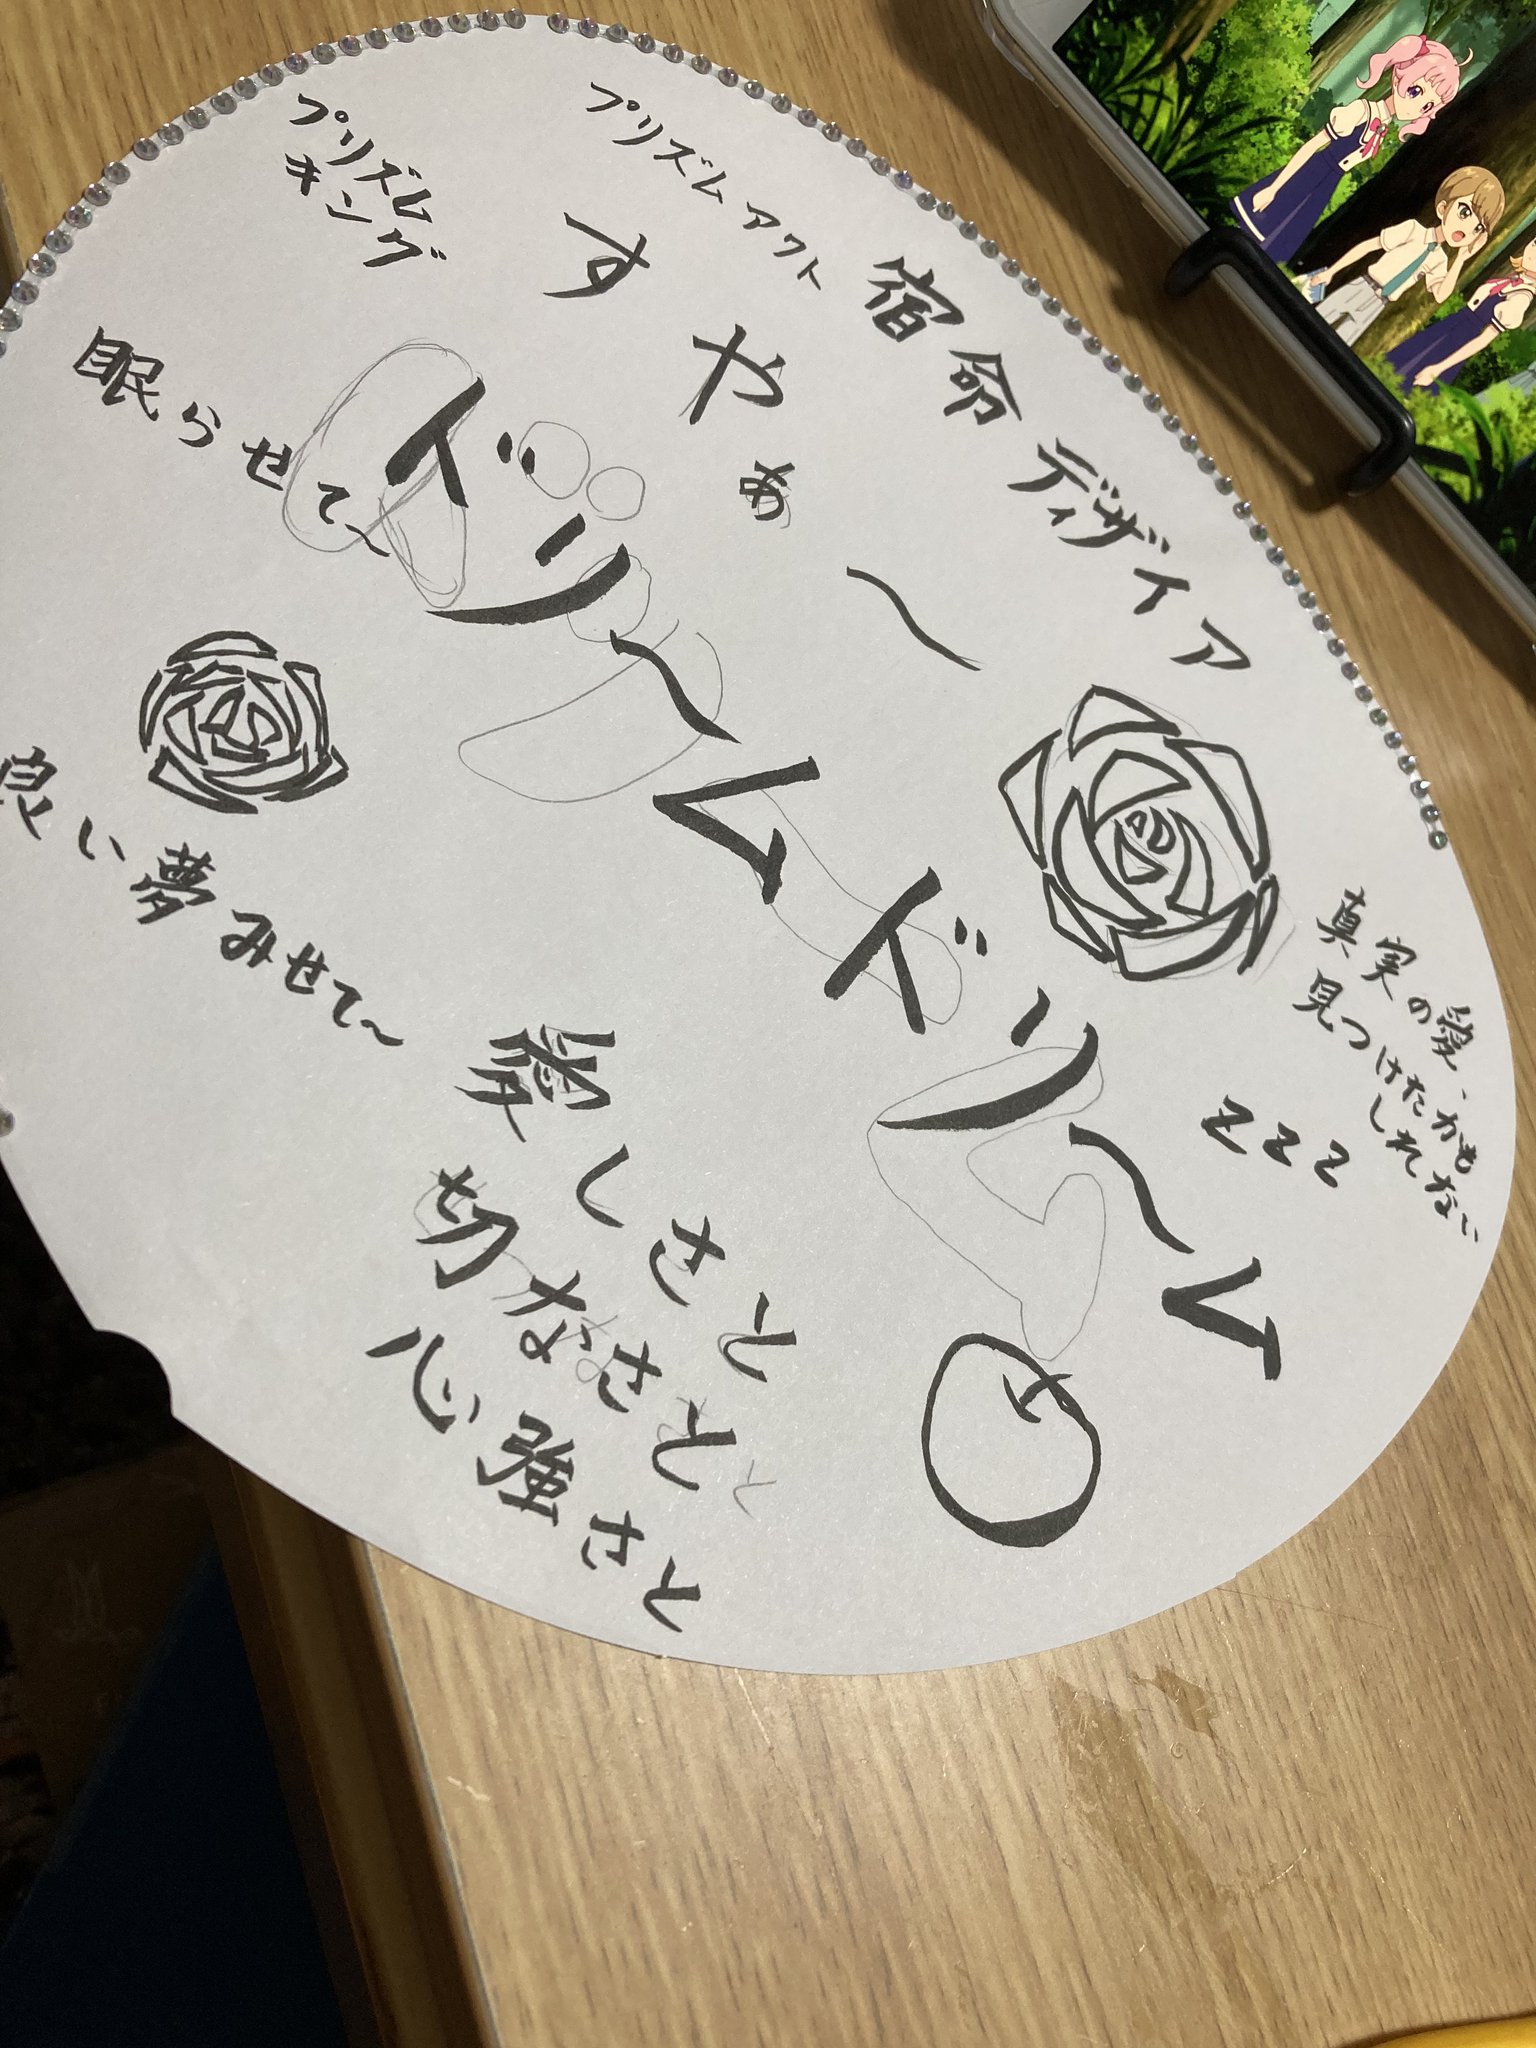 プリズムアクト
宿命ディザイア
プリズム
キング
すやぁ〜
眠らせて〜
ドリ〜ムドリ〜ム
真実の愛、
見つけたかも
しれない
zzz
良い夢みせて〜
愛しさと
切なさと
と
心強さと